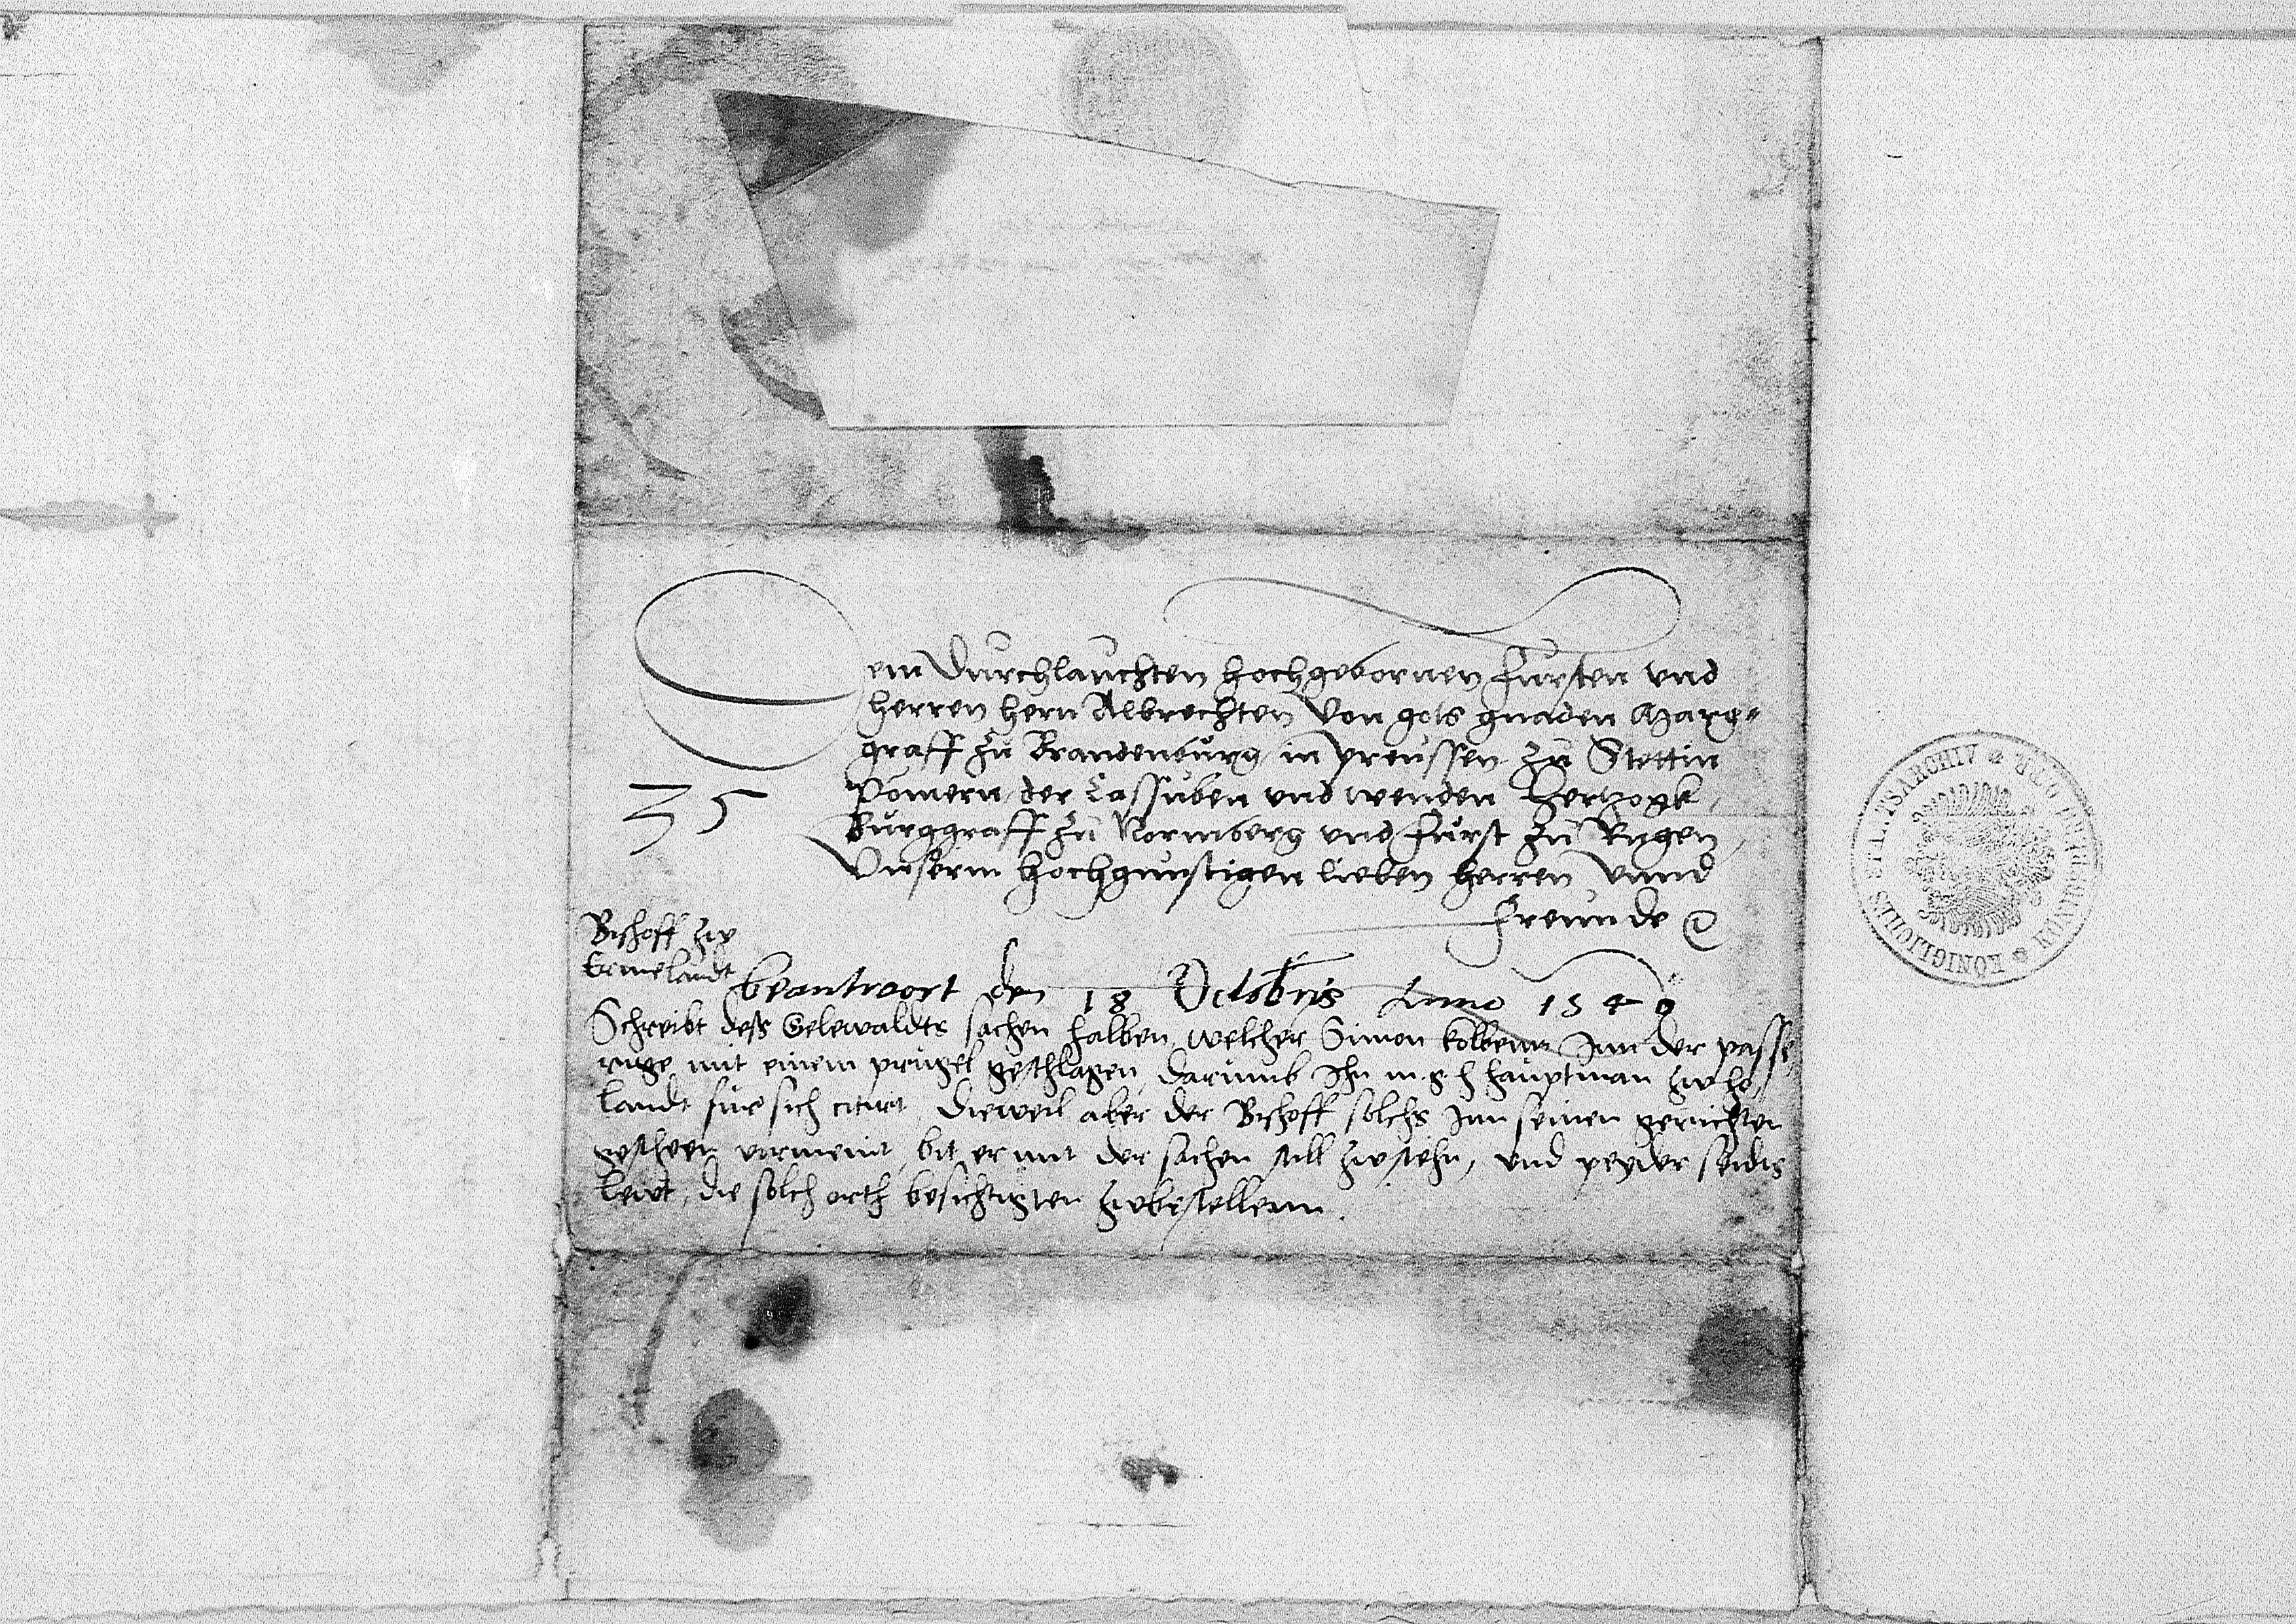 Dem Durchlauchten hochgebornen Fursten und
herren hern Albrechten von gots gnaden Marg=
graff zu Brandenburg in Preussen zu Stettin
Pomern der Cassuben und wenden Hertzogk,
35
Burggraff zu Normberg und Furst zu Rugen,
Unserm hochgunstigen lieben herren unnd
Freunde
Bischoff zw
Ermelandt
beantwort den 18 Octobris Anno 1540
Schreibt dess Gelewaldts sachen halben, welcher Simon kolbenn Inn der passe,
ruge mit einem prugel geschlagen, darumb Ihn m g h hauptman zw ho,
landt fur sich citirt, Dieweil aber der Bischoff solchs Inn seinen gerichten
gescheen vermeint, bit er mit der sachen still zwstehn, und peyder seidts
lewt, die solch orth besichtigten zwbestellenn.
KÖNIGLICHES STAATSARCHIV KÖNIGSBERG